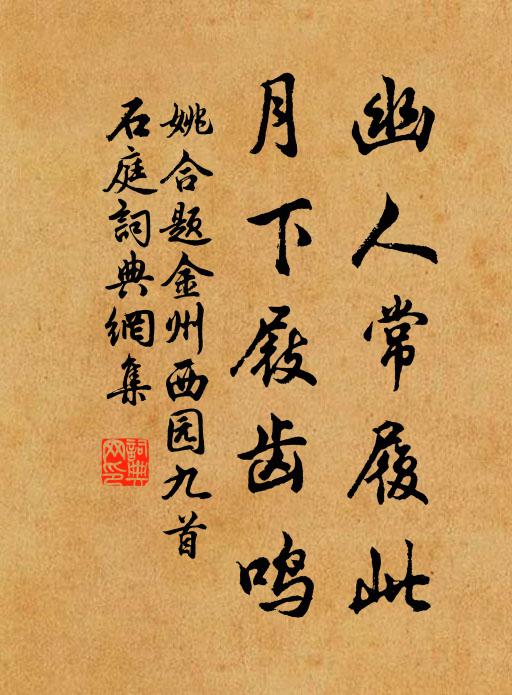 幽人常履此
月下屐齿鸣
姚合题金州西园九首
石庭詞典網集
詞典
网印